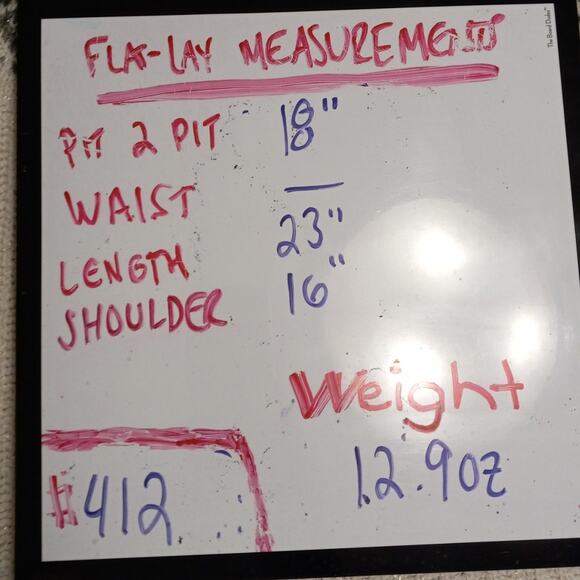 FLAT-LAY MEASUREMENTS
PIT 2 PIT 18"
WAIST —
LENGTH 23"
SHOULDER 16"
Weight
12.9oz
#412
The Board Dudes™